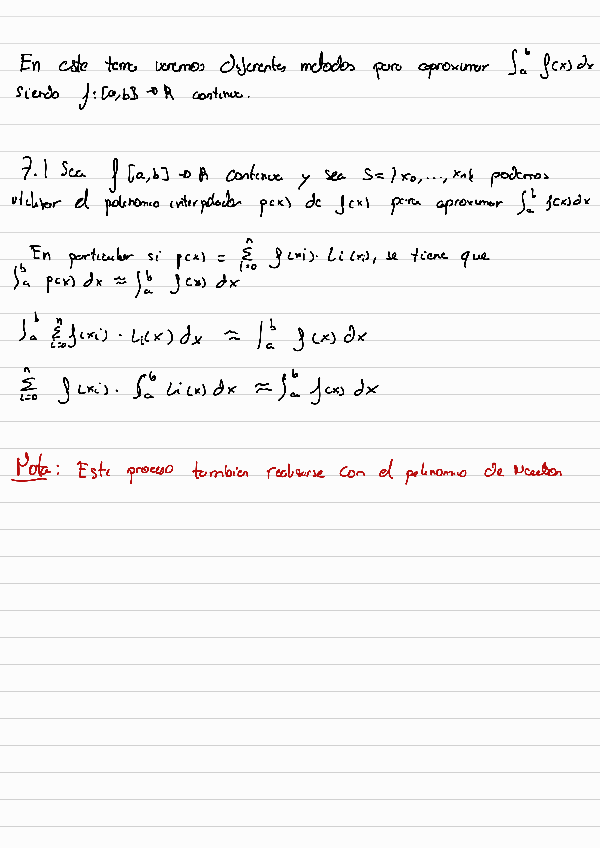 En este tema veremos diferentes metodos para aproximar ∫_a^b f(x) dx
siendo f: [a,b] → R continua.
7.1 Sea f [a,b] → R continua y sea S = {x_0, ..., x_n} podemos
utilizar el polinomio interpolador p(x) de f(x) para aproximar ∫_a^b f(x)dx
En particular si p(x) = ∑_{i=0}^n f(xi) · Li(x), se tiene que
∫_a^b p(x) dx ≈ ∫_a^b f(x) dx
∫_a^b ∑_{i=0}^n f(xi) · Li(x) dx ≈ ∫_a^b f(x) dx
∑_{i=0}^n f(xi) · ∫_a^b Li(x) dx ≈ ∫_a^b f(x) dx
Nota: Este proceso tambien realizarse con el polinomio de Newton